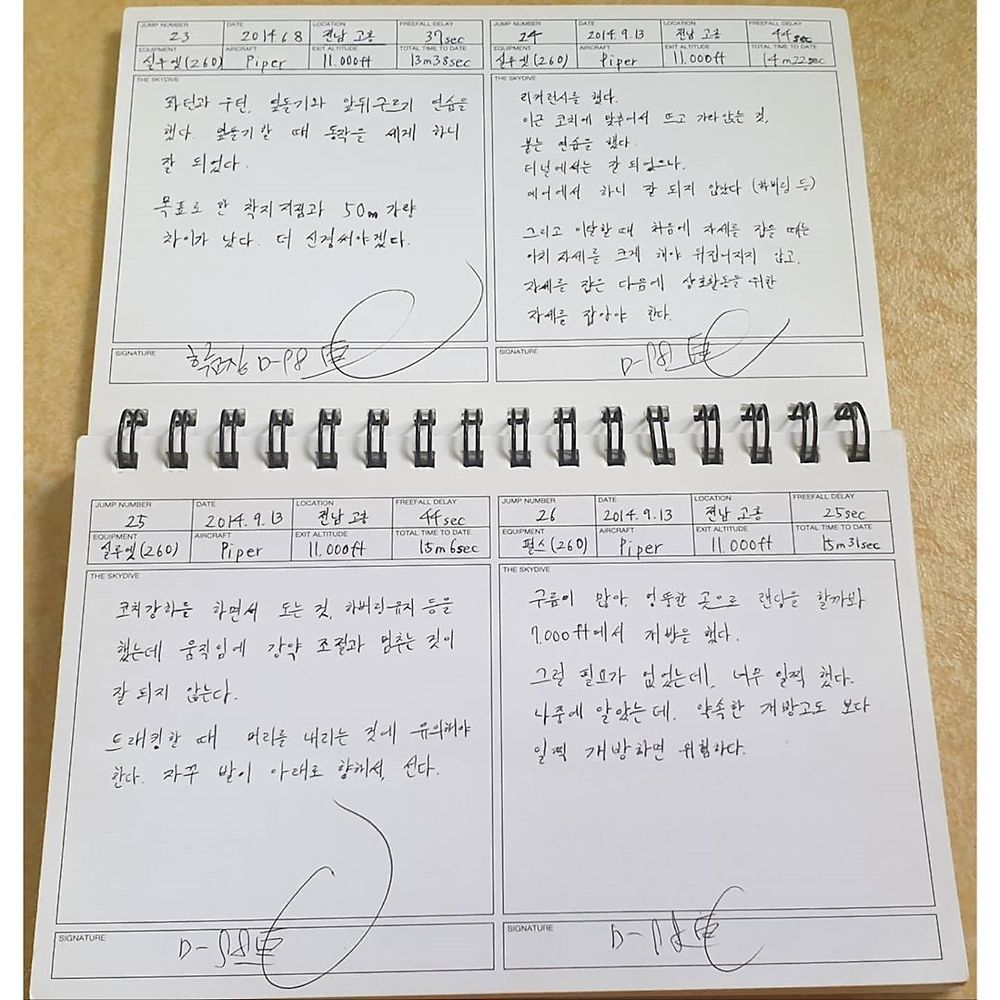 JUMP NUMBER DATE LOCATION FREEFALL DELAY
23 2014.6.8 전남 고흥 37sec
EQUIPMENT AIRCRAFT EXIT ALTITUDE TOTAL TIME TO DATE
실루엣(260) Piper 11.000ft 13m38sec
THE SKYDIVE
좌턴과 우턴, 옆돌기와 앞뒤구르기 연습을
했다. 옆돌기할 때 동작을 세게 하니
잘 되었다.
목표로 한 착지지점과 50m 가량
차이가 났다. 더 신경써야겠다.
SIGNATURE
D-98
JUMP NUMBER DATE LOCATION FREEFALL DELAY
24 2014.9.13 전남 고흥 44sec
EQUIPMENT AIRCRAFT EXIT ALTITUDE TOTAL TIME TO DATE
실루엣(260) Piper 11.000ft 14m22sec
THE SKYDIVE
리커런시를 했다.
이근 코치에 맞추어서 뜨고 가라앉는 것,
붙는 연습을 했다.
터널에서는 잘 되었으나,
에어에서 하니 잘 되지 않았다 (하버링 등)
그리고 이탈할 때 처음에 자세를 잡을 때는
아치 자세를 크게 해야 뒤집어지지 않고,
자세를 잡은 다음에 상호활동을 위한
자세를 잡아야 한다.
SIGNATURE
D-98
JUMP NUMBER DATE LOCATION FREEFALL DELAY
25 2014.9.13 전남 고흥 44sec
EQUIPMENT AIRCRAFT EXIT ALTITUDE TOTAL TIME TO DATE
실루엣(260) Piper 11.000ft 15m6sec
THE SKYDIVE
코치강하를 하면서 도는 것, 하버링유지 등을
했는데 움직임에 강약 조절과 멈추는 것이
잘 되지 않는다.
트래킹할 때 머리를 내리는 것에 유의해야
한다. 자꾸 발이 아래로 향해서, 선다.
SIGNATURE
D-98
JUMP NUMBER DATE LOCATION FREEFALL DELAY
26 2014.9.13 전남 고흥 25sec
EQUIPMENT AIRCRAFT EXIT ALTITUDE TOTAL TIME TO DATE
펄스(260) Piper 11.000ft 15m31sec
THE SKYDIVE
구름이 많아, 엉뚱한 곳으로 랜딩을 할까봐
7.000ft에서 개방을 했다.
그럴 필요가 없었는데, 너무 일찍 했다.
나중에 알았는데, 약속한 개방고도 보다
일찍 개방하면 위험하다.
SIGNATURE
D-98